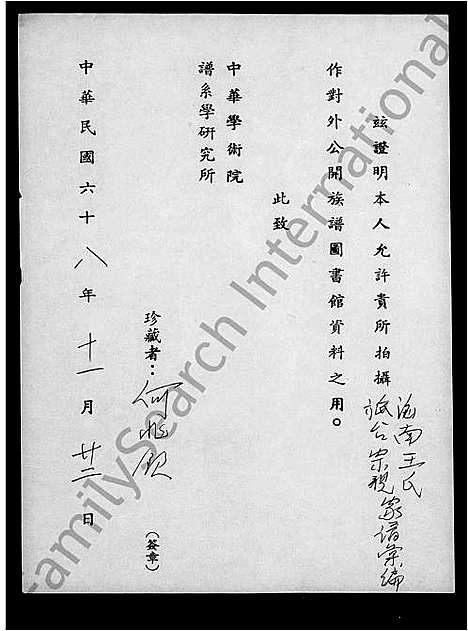 茲證明本人允許貴所拍攝海南王氏旅台宗親家譜彙編
作對外公開族譜圖書館資料之用。
此致
中華學術院
譜系學研究所
珍藏者：何
（簽章）
中華民國六十八年十一月廿二日
FamilySearch International